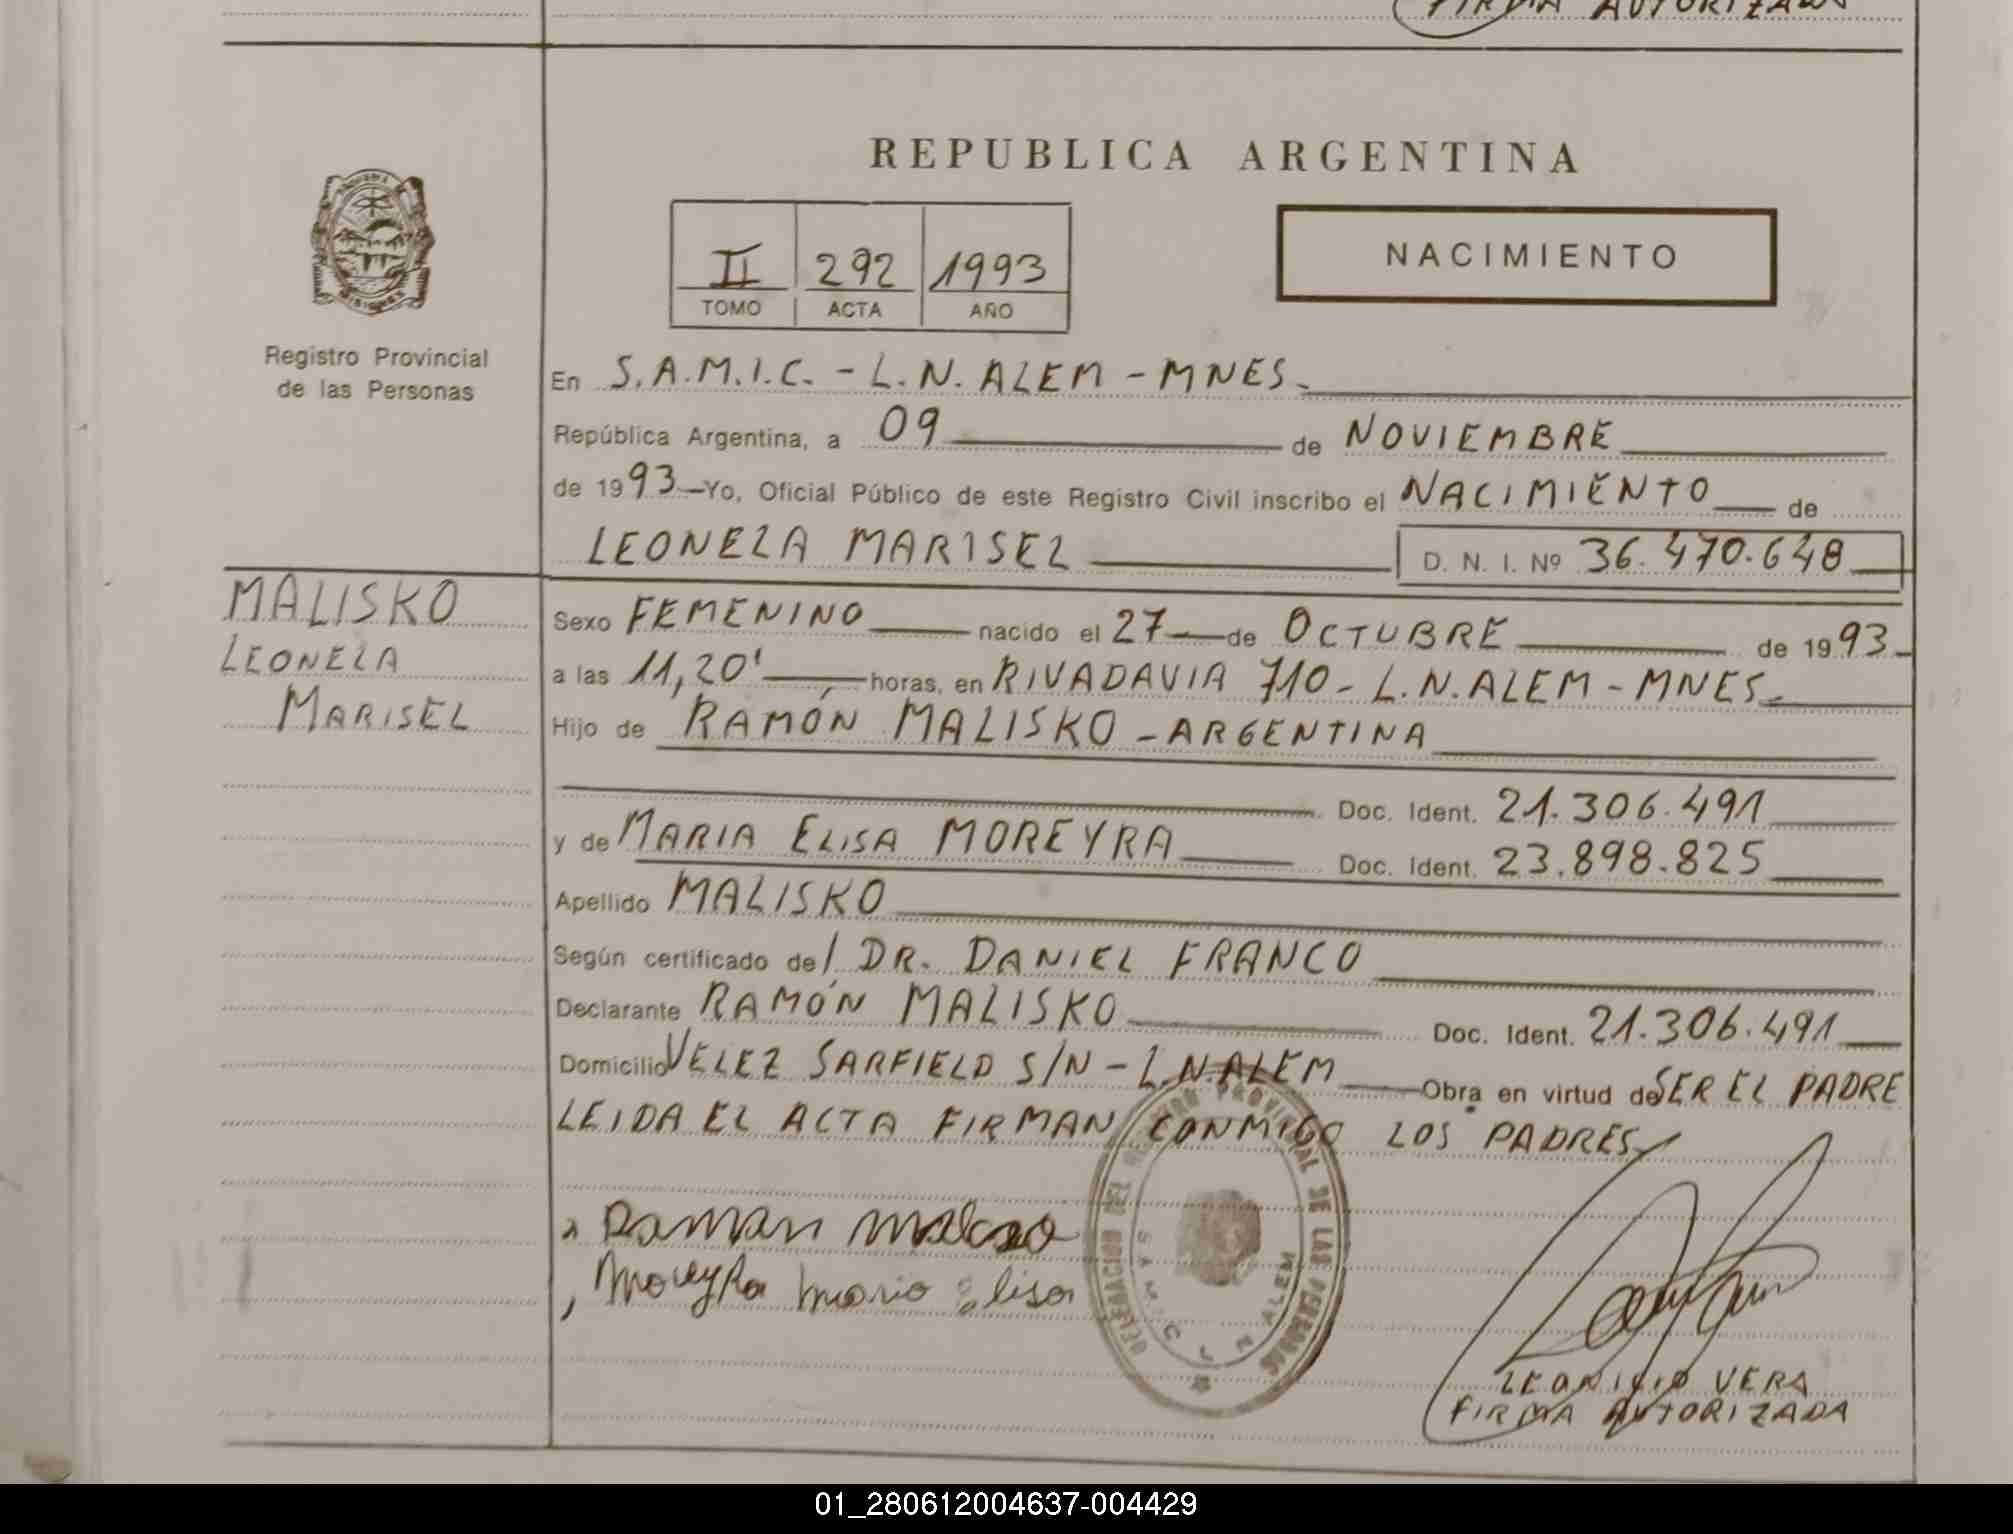 FIRMA AUTORIZADA
REPUBLICA ARGENTINA
II 292 1993
TOMO ACTA AÑO
NACIMIENTO
MISIONES
Registro Provincial
de las Personas
En S.A.M.I.C. - L.N. ALEM - MNES.
República Argentina, a 09 de NOVIEMBRE
de 1993 Yo, Oficial Público de este Registro Civil inscribo el NACIMIENTO de
LEONELA MARISEL D. N. I. Nº 36.470.648
MALISKO
LEONELA
MARISEL
Sexo FEMENINO nacido el 27 de OCTUBRE de 1993
a las 11,20' horas, en RIVADAVIA 710 - L.N. ALEM - MNES.
Hijo de RAMÓN MALISKO - ARGENTINA
Doc. Ident. 21.306.491
y de MARIA ELISA MOREYRA Doc. Ident. 23.898.825
Apellido MALISKO
Según certificado de/ DR. DANIEL FRANCO
Declarante RAMÓN MALISKO Doc. Ident. 21.306.491
Domicilio VELEZ SARFIELD S/N - L.N. ALEM Obra en virtud de SER EL PADRE
LEIDA EL ACTA FIRMAN CONMIGO LOS PADRES
Moreyra maria elisa
DELEGACION DEL REGISTRO PROVINCIAL DE LAS PERSONAS
S A M I C L N ALEM
LEONICIO VERA
FIRMA AUTORIZADA
01_280612004637-004429